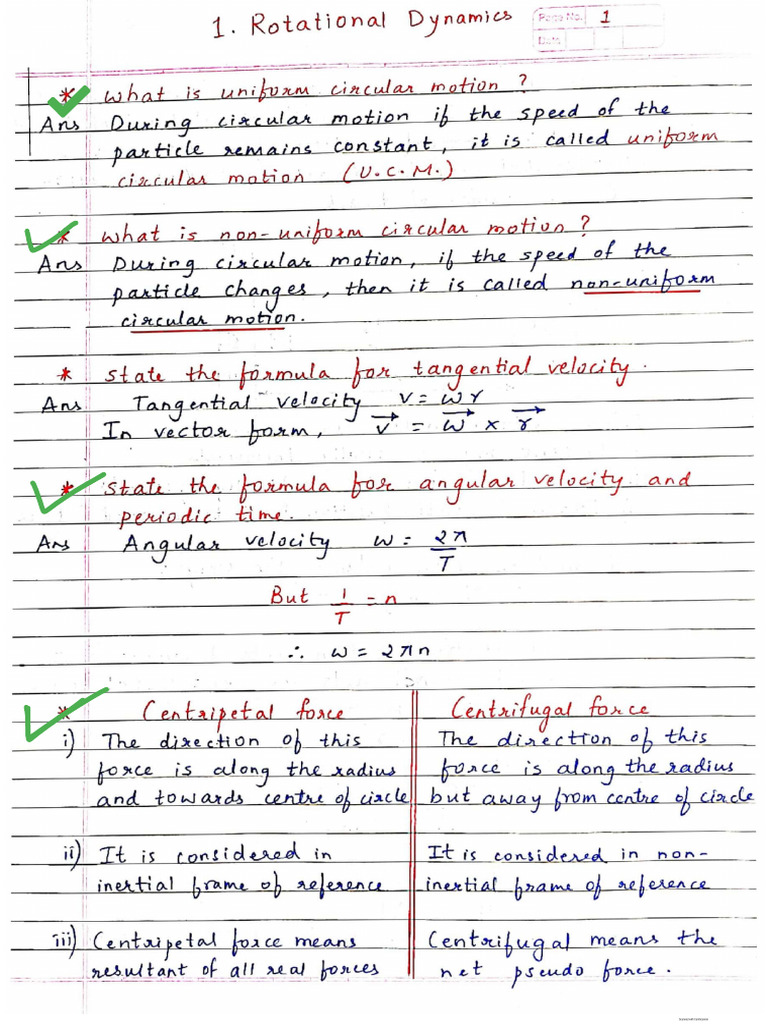 1. Rotational Dynamics
Page No. 1
Date
* What is uniform circular motion ?
Ans During circular motion if the speed of the
particle remains constant, it is called uniform
circular motion (U.C.M.)
* What is non-uniform circular motion ?
Ans During circular motion, if the speed of the
particle changes, then it is called non-uniform
circular motion.
* State the formula for tangential velocity.
Ans Tangential velocity v = ωr
In vector form, v⃗ = ω⃗ × r⃗
* State the formula for angular velocity and
periodic time.
Ans Angular velocity ω = 2π/T
But 1/T = n
∴ ω = 2πn
* Centripetal force
i) The direction of this
force is along the radius
and towards centre of circle
ii) It is considered in
inertial frame of reference
iii) Centripetal force means
resultant of all real forces
Centrifugal force
The direction of this
force is along the radius
but away from centre of circle
It is considered in non-
inertial frame of reference
Centrifugal means the
net pseudo force.